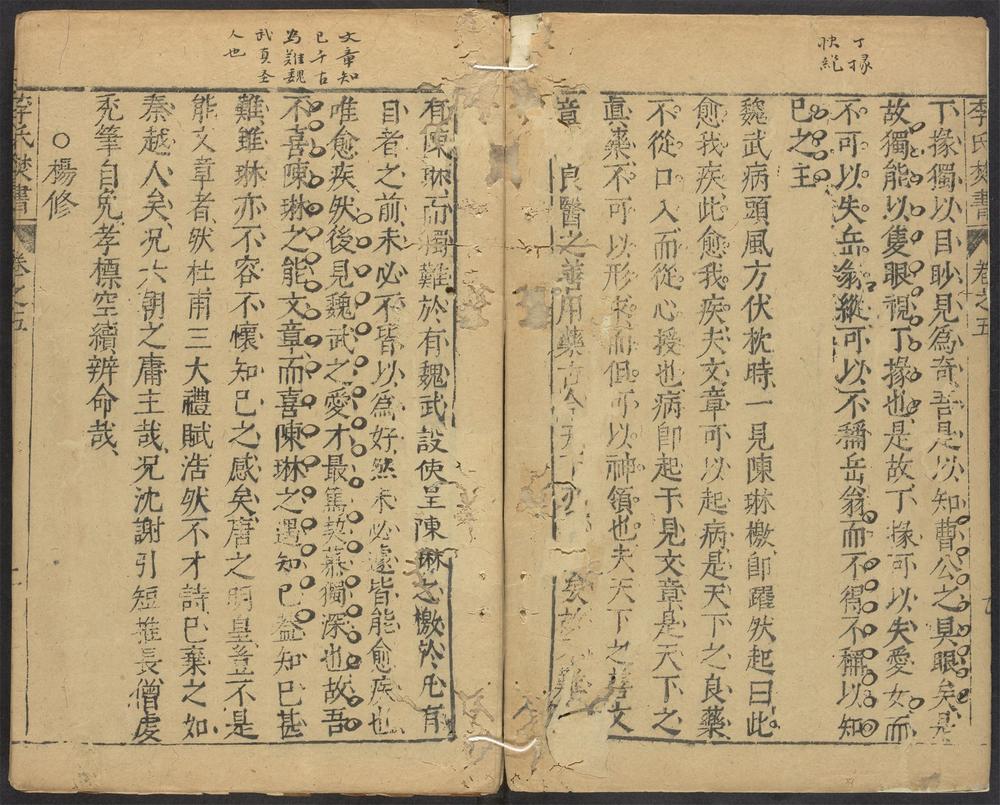 丁掾
快絕
李氏焚書
卷之五
丁掾獨以目眇見爲奇吾是以知曹公之具眼矣是
故獨能以隻眼視丁掾也是故丁掾可以失愛女而
不可以失岳翁縱可以不稱岳翁而不得不稱以知
己之主
魏武病頭風方伏枕時一見陳琳檄卽躍然起曰此
愈我疾此愈我疾夫文章可以起病是天下之良藥
不從口入而從心授也病卽起于見文章是天下之
眞藥不可以形求而但可以神領也夫天下之善文
章 良醫之善用藥古今天下 矣故不難
有陳琳而獨難於有魏武設使呈陳琳之檄於凡有
目者之前未必不皆以爲好然未必遽皆能愈疾也
唯愈疾然後見魏武之愛才最篤契慕獨深也故吾
不喜陳琳之能文章而喜陳琳之遇知己蓋知己甚
難雖琳亦不容不懷知己之感矣唐之明皇豈不是
能文章者然杜甫三大禮賦浩然不才詩已棄之如
秦越人矣況六朝之庸主哉況沈謝引短推長僧虔
禿筆自免孝標空續辨命哉
○楊修
文章知
己千古
爲難魏
武眞圣
人也
李氏焚書
卷之五